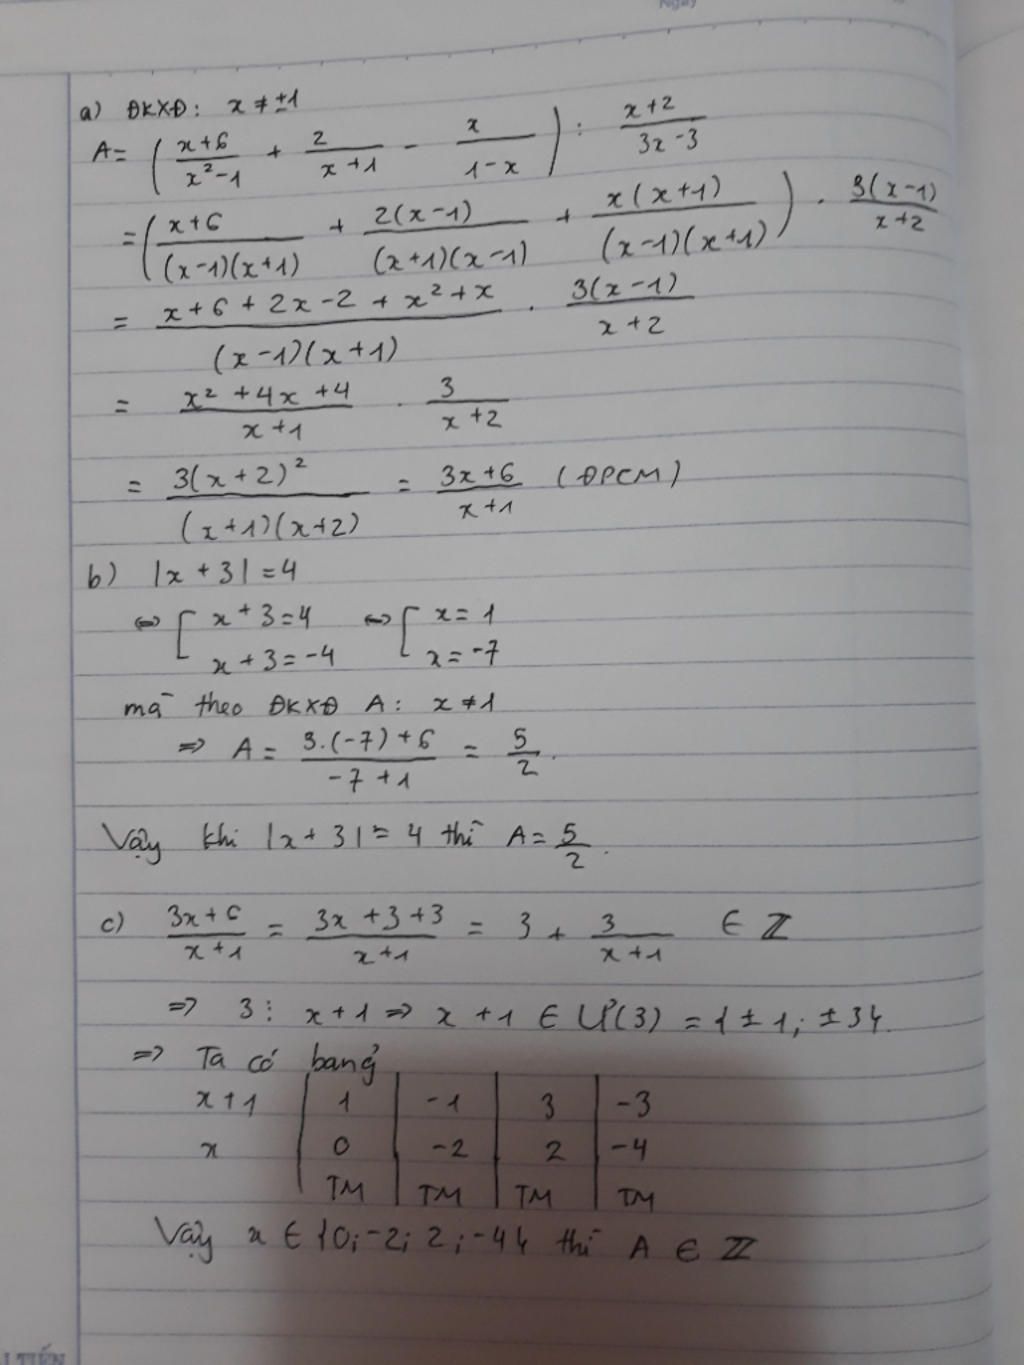 Ngày
a) ĐKXĐ: x ≠ ±1
A = ( (x+6)/(x²-1) + 2/(x+1) - x/(1-x) ) : (x+2)/(3x-3)
= ( (x+6)/((x-1)(x+1)) + (2(x-1))/((x+1)(x-1)) + (x(x+1))/((x-1)(x+1)) ) . (3(x-1))/(x+2)
= (x+6+2x-2+x²+x)/((x-1)(x+1)) . (3(x-1))/(x+2)
= (x²+4x+4)/(x+1) . 3/(x+2)
= (3(x+2)²)/((x+1)(x+2)) = (3x+6)/(x+1) (ĐPCM)
b) |x+3| = 4
⇔ [ x+3=4 ⇔ [ x=1
x+3=-4 x=-7
mà theo ĐKXĐ A: x ≠ 1
⇒ A = (3.(-7)+6)/(-7+1) = 5/2.
Vậy khi |x+3| = 4 thì A = 5/2.
c) (3x+6)/(x+1) = (3x+3+3)/(x+1) = 3 + 3/(x+1) ∈ Z
⇒ 3 ⋮ x+1 ⇒ x+1 ∈ Ư(3) = {±1; ±3}.
⇒ Ta có bảng
x+1 | 1 | -1 | 3 | -3
x | 0 | -2 | 2 | -4
TM | TM | TM | TM
Vậy x ∈ {0; -2; 2; -4} thì A ∈ Z
TIẾN